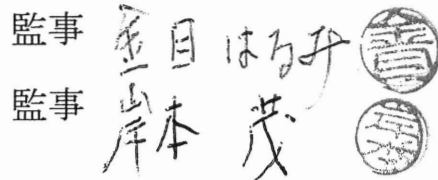 監事 金目 はるみ
監事 岸本 茂